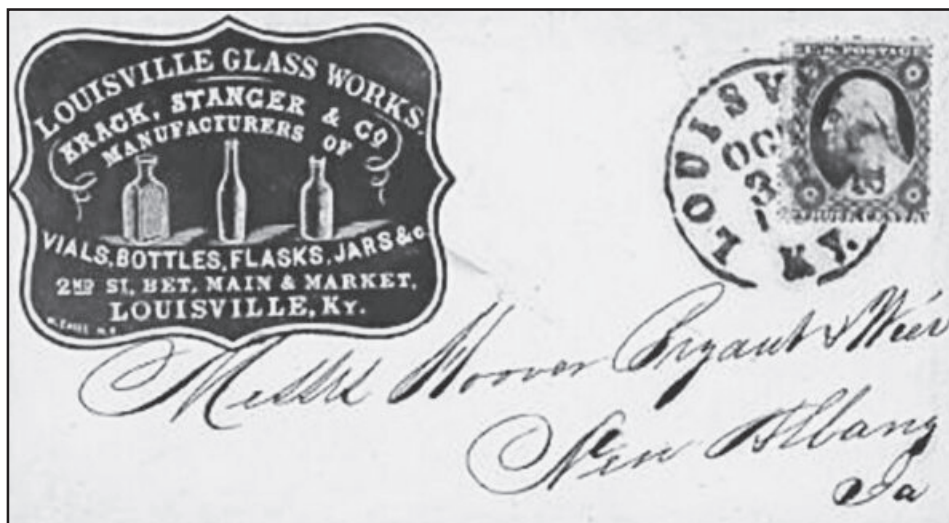 LOUISVILLE GLASS WORKS.
KRACK, STANGER & CO
MANUFACTURERS OF
VIALS, BOTTLES, FLASKS, JARS &c.
2ND ST, BET, MAIN & MARKET,
LOUISVILLE, KY.
U.S. POSTAGE
LOUISV
OC
3
KY.
Messrs Hoover Bryant & Weir
New Albany
Ia